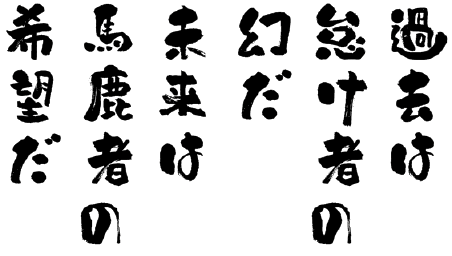 過去は
怠叶者の
幻だ
未来は
馬鹿者の
希望だ